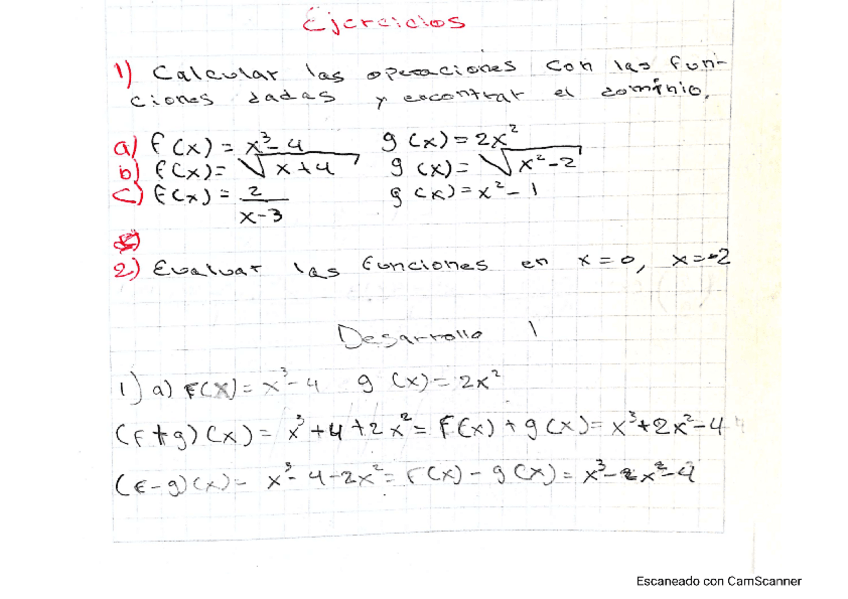 Ejercicios
1) Calcular las operaciones con las fun-
ciones dadas y encontrar el dominio.
a) f(x) = x³-4 g(x) = 2x²
b) f(x) = √x+4 g(x) = √x²-2
c) f(x) = 2/x-3 g(x) = x²-1
2) Evaluar las funciones en x=0, x=-2
Desarrollo 1
1) a) F(x) = x³-4 g(x) = 2x²
(f+g)(x) = x³+4+2x² = F(x)+g(x) = x³+2x²-4
(f-g)(x) - x³-4-2x² = F(x)-g(x) = x³-2x²-4
Escaneado con CamScanner